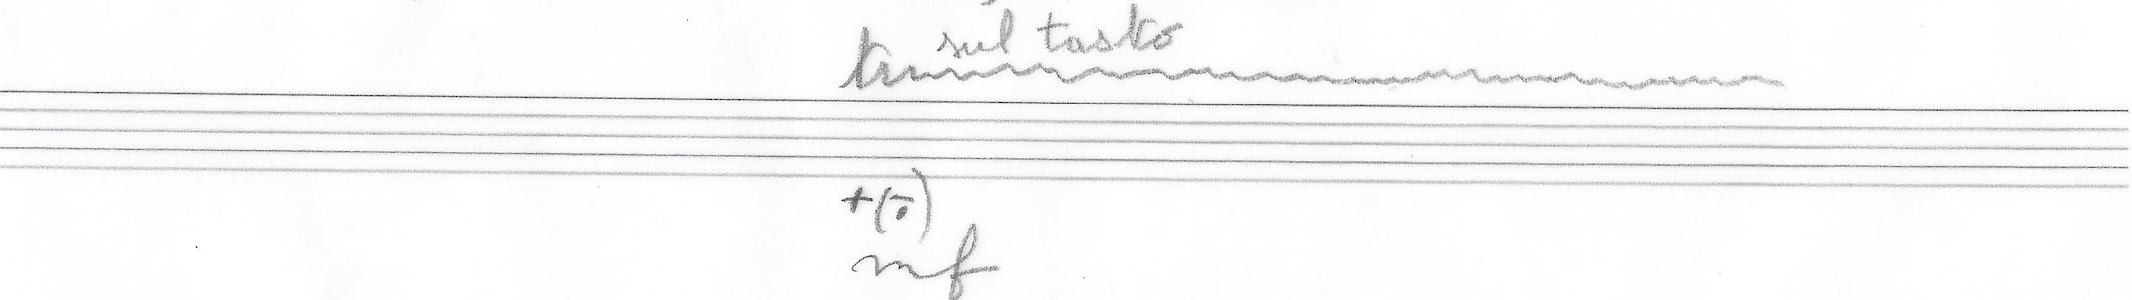 sul tasto
tr
+(-.)
mf